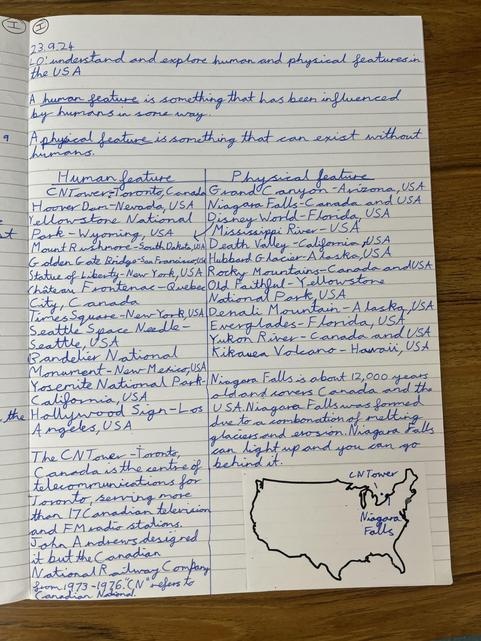 23.9.24
LO: understand and explore human and physical features in
the USA
A human feature is something that has been influenced
by humans in some way.
A physical feature is something that can exist without
humans.
Human feature
CN Tower - Toronto, Canada
Hoover Dam - Nevada, USA
Yellowstone National
Park - Wyoming, USA
Mount Rushmore - South Dakota, USA
Golden Gate Bridge - San Francisco, USA
Statue of Liberty - New York, USA
Château Frontenac - Quebec
City, Canada
Times Square - New York, USA
Seattle Space Needle -
Seattle, USA
Bandelier National
Monument - New Mexico, USA
Yosemite National Park -
California, USA
Hollywood Sign - Los
Angeles, USA
The CN Tower - Toronto,
Canada is the centre of
telecommunications for
Toronto, serving more
than 17 Canadian television
and FM radio stations.
John Andrews designed
it but the Canadian
National Railway Company
from 1973-1976. "CN" refers to
Canadian National.
Physical feature
Grand Canyon - Arizona, USA
Niagara Falls - Canada and USA
Disney World - Florida, USA
Mississippi River - USA
Death Valley - California, USA
Hubbard Glacier - Alaska, USA
Rocky Mountains - Canada and USA
Old Faithful - Yellowstone
National Park, USA
Denali Mountain - Alaska, USA
Everglades - Florida, USA
Yukon River - Canada and USA
Kikauea Volcano - Hawaii, USA
Niagara Falls is about 12,000 years
old and covers Canada and the
USA. Niagara Falls was formed
due to a combonation of melting
glaciers and erosion. Niagara Falls
can light up and you can go
behind it.
CN Tower
Niagara
Falls
the